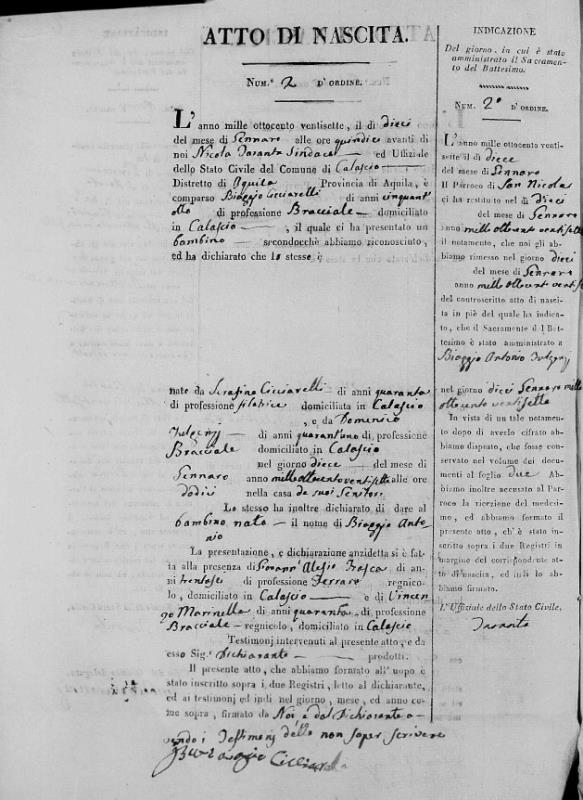 ATTO DI NASCITA.
Num.° 2 D'ORDINE.
L'anno mille ottocento ventisette, il dì dieci
del mese di Gennaro alle ore quindici avanti di
noi Nicola Taranta Sindaco ed Uffiziale
dello Stato Civile del Comune di Calascio
Distretto di Aquila Provincia di Aquila, è
comparso Biaggio Cicciarelli di anni cinquant'
otto di professione Bracciale domiciliato
in Calascio, il quale ci ha presentato un
bambino secondocchè abbiamo riconosciuto,
ed ha dichiarato che lo stesso è
nato da Serafina Cicciarelli di anni quaranta
di professione filatrice domiciliata in Calascio
, e da Domenico
di anni quarantuno di professione
Bracciale domiciliato in Calascio
nel giorno diece del mese di
Gennaro anno mille ottocento ventisette alle ore
dodici nella casa de suoi Genitori
Lo stesso ha inoltre dichiarato di dare al
bambino nato il nome di Biaggio Anto-
nio
La presentazione, e dichiarazione anzidetta si è fat-
ta alla presenza di Giovanni Alesio Frasca di an-
ni trentasei di professione Ferraro regnico-
lo, domiciliato in Calascio e di Vincen
zo Marinella di anni quaranta di professione
Bracciale regnicolo, domiciliato in Calascio
Testimonj intervenuti al presente atto, e da
esso Sig.r Dichiarante prodotti.
Il presente atto, che abbiamo formato all'uopo è
stato inscritto sopra i due Registri, letto al dichiarante,
ed ai testimonj ed indi nel giorno, mese, ed anno co-
me sopra, firmato da Noi, e dal Dichiarante a-
vendo i Testimonj detto non saper scrivere
Biaggio Cicciarelli
INDICAZIONE
Del giorno, in cui è stato
amministrato il Sacramen-
to del Battesimo.
Num. 2° D'ORDINE.
L'anno mille ottocento venti-
sette il dì diece
del mese di Gennaro
Il Parroco di San Nicola
ci ha restituito nel dì dieci
del mese di Gennaro
anno mille ottocento ventisette
il notamento, che noi gli ab-
biamo rimesso nel giorno dieci
del mese di Gennaro
anno mille ottocento ventisette
del controscritto atto di nasci-
ta in piè del quale ha indica-
to, che il Sacramento di Bat-
tesimo è stato amministrato a
Biaggio Antonio
nel giorno dieci Gennaro mille
ottocento ventisette
In vista di un tale notamento
dopo di averlo cifrato abbiamo
disposto, che fosse conser-
vato nel volume dei documen-
ti al foglio due Ab-
biamo inoltre accusato al Par-
roco la ricezione del medesi-
mo, ed abbiamo formato il
presente atto, ch'è stato in-
scritto sopra i due Registri in
margine del corrispondente at-
to di nascita, ed indi lo ab-
biamo firmato.
L'Uffiziale dello Stato Civile,
Taranta